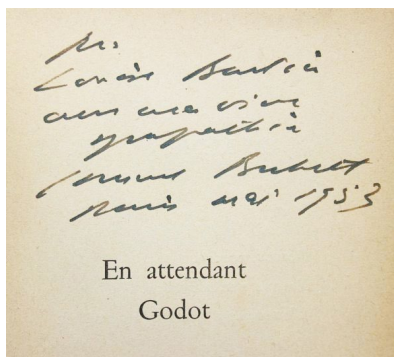 pour
Louise
avec ma vive
sympathie
Samuel Beckett
Paris mai 1953
En attendant
Godot